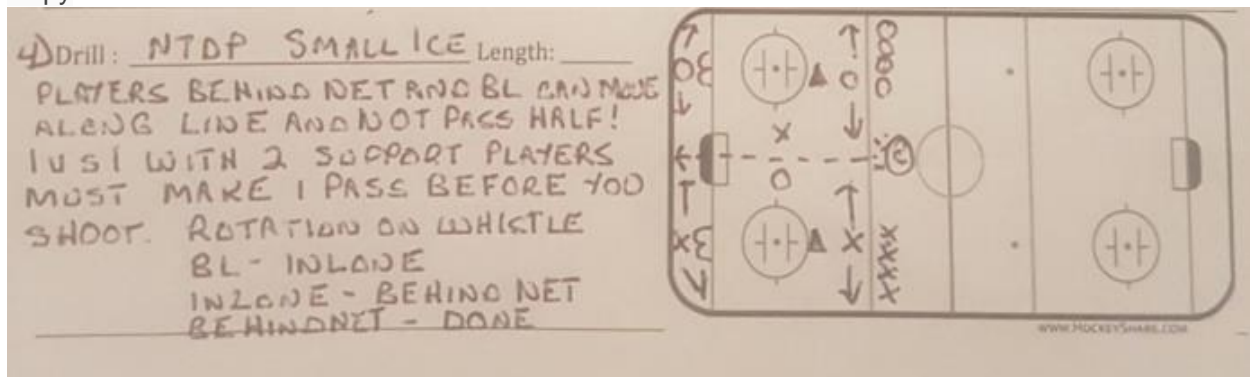 4) Drill: NTDP SMALL ICE Length:
PLAYERS BEHIND NET AND BL CAN MOVE
ALONG LINE AND NOT PASS HALF!
1 VS 1 WITH 2 SUPPORT PLAYERS
MUST MAKE 1 PASS BEFORE YOU
SHOOT. ROTATION ON WHISTLE
BL - INZONE
INZONE - BEHIND NET
BEHIND NET - DONE
O
O
OOOO
X
C
O
X
X
XXXX
WWW.HOCKEYSHARE.COM